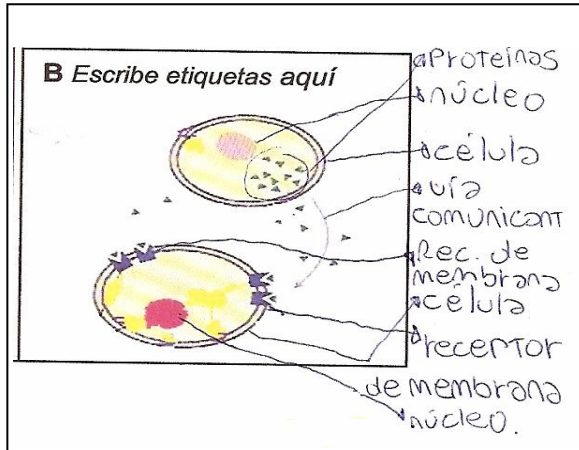 B Escribe etiquetas aquí
Proteínas
núcleo
célula
vía
comunicant
Rec. de
membrana
célula
receptor
de membrana
núcleo.